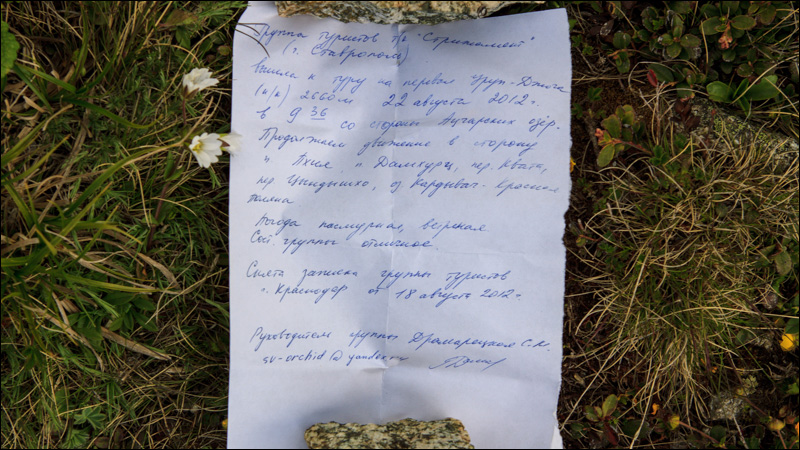 Группа туристов т/к "Стрижамент"
(г. Ставрополь)
вышла к туру на перевал
(н/к) 2660м 22 августа 2012г.
в 9 36 со стороны озёр.
Продолжаем движение в сторону
пер.
пер Цындышхо, оз Кардывач - Красная
поляна
Погода пасмурная, ветреная.
Сост. группы отличное.
Снята записка группы туристов
г. Краснодар от 18 августа 2012г.
Руководитель группы С.Н.
sv-orchid@yandex.ru